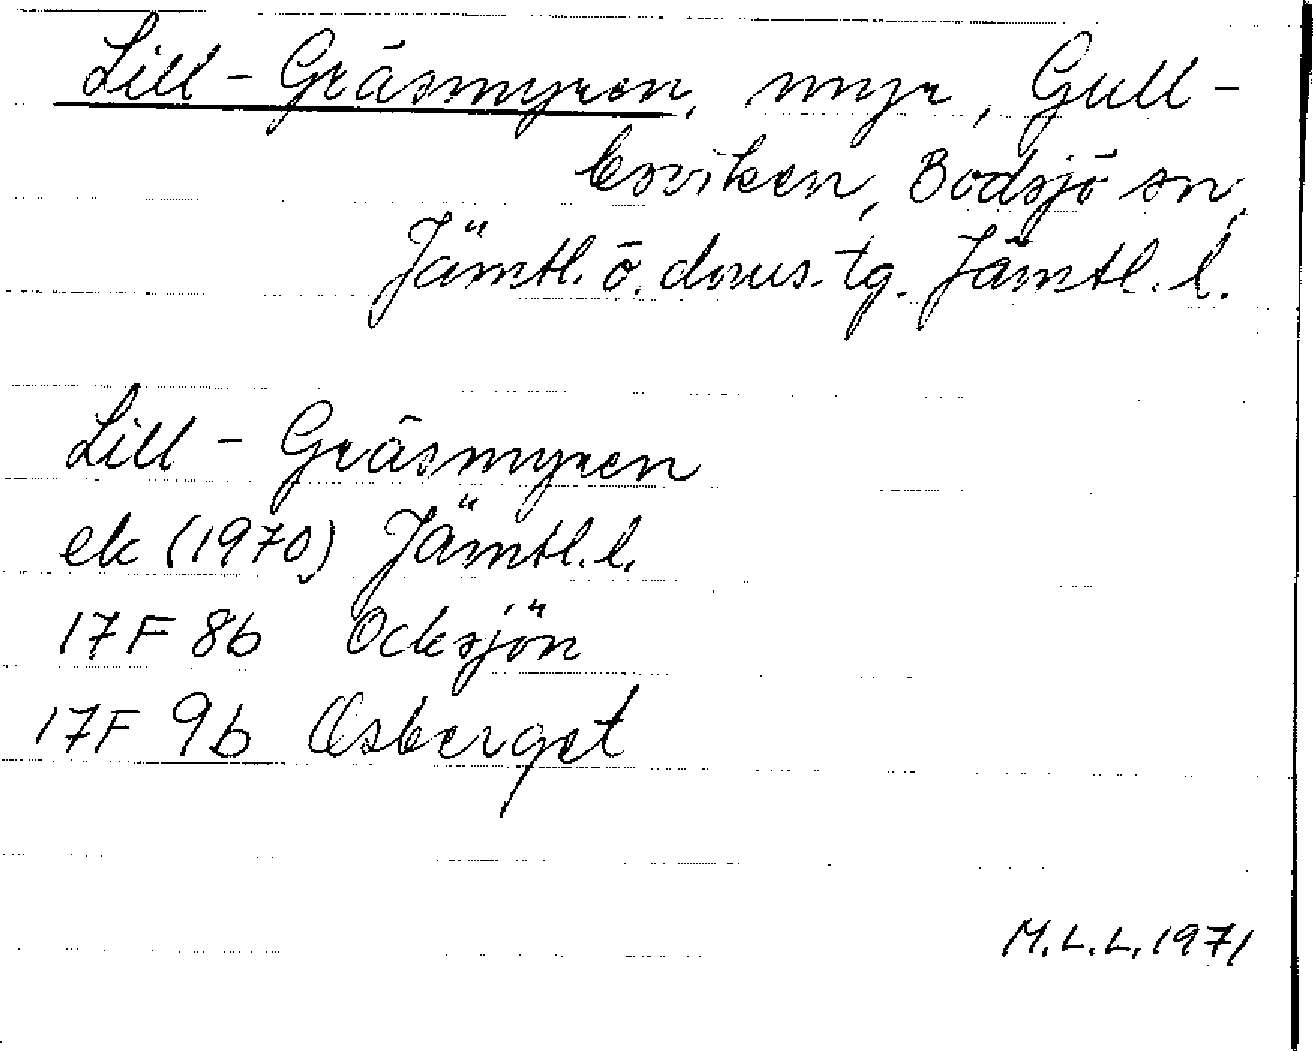 Lill-Gräsmyren, myr, Gull-
boviken, Bodsjö sn,
Jämtl. ö. doms. tg. Jämtl. l.
Lill-Gräsmyren
ek (1970) Jämtl. l.
17F 8b Ocksjön
17F 9b Åsberget
M.L.L. 1971